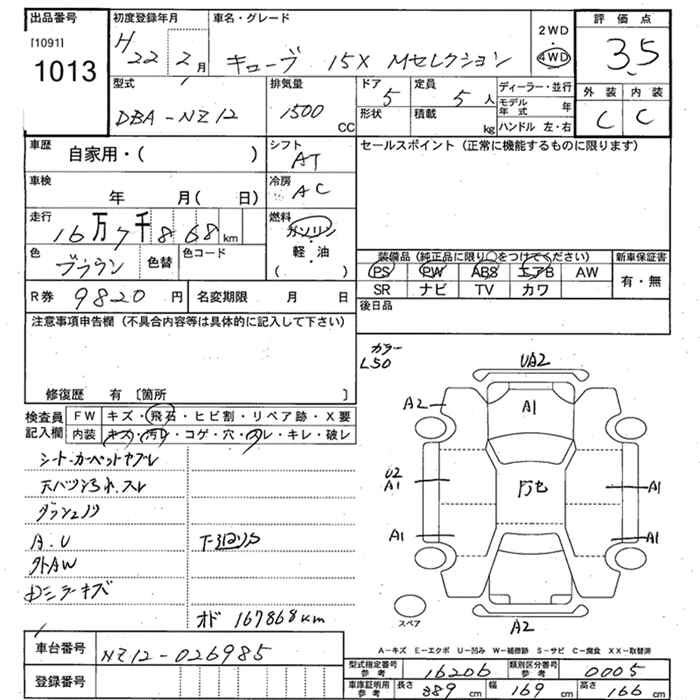 出品番号
[1091]
1013
初度登録年月
H 22年 2月
車名・グレード
キューブ 15X Mセレクション
2WD
4WD
評価点
3.5
外装 内装
C C
型式
DBA-NZ12
排気量
1500 CC
ドア
5
形状
定員
5人
積載
kg
ディーラー・並行
モデル年式 年
ハンドル 左・右
車歴
自家用・( )
シフト
AT
車検
年 月( 日)
冷房
AC
走行
16万7千868km
燃料
ガソリン
軽・油
( )
色
ブラウン
色替
色コード
R券 9820円
名変期限 月 日
セールスポイント(正常に機能するものに限ります)
装備品(純正品に限り○をつけてください)
PS PW ABS エアB AW
SR ナビ TV カワ
新車保証書
有・無
後日品
注意事項申告欄(不具合内容等は具体的に記入して下さい)
修復歴 有 [箇所 ]
検査員記入欄
FW キズ・飛石・ヒビ割・リペア跡・X要
内装 キズ・汚レ・コゲ・穴・スレ・キレ・破レ
シート・カーペットヤブレ
A.U
外AW
オド 167868km
カラー
L50
UA2
A2
A1
U2
A1
万七
A1
A1
A1
スペア
A2
A-キズ E-エクボ U-凹み W-補修跡 S-サビ C-腐食 XX-取替済
車台番号
NZ12-026985
登録番号
型式指定番号 参考
16206
類別区分番号 参考
0005
車庫証明用 参考
長さ 389cm
幅 169cm
高さ 166cm